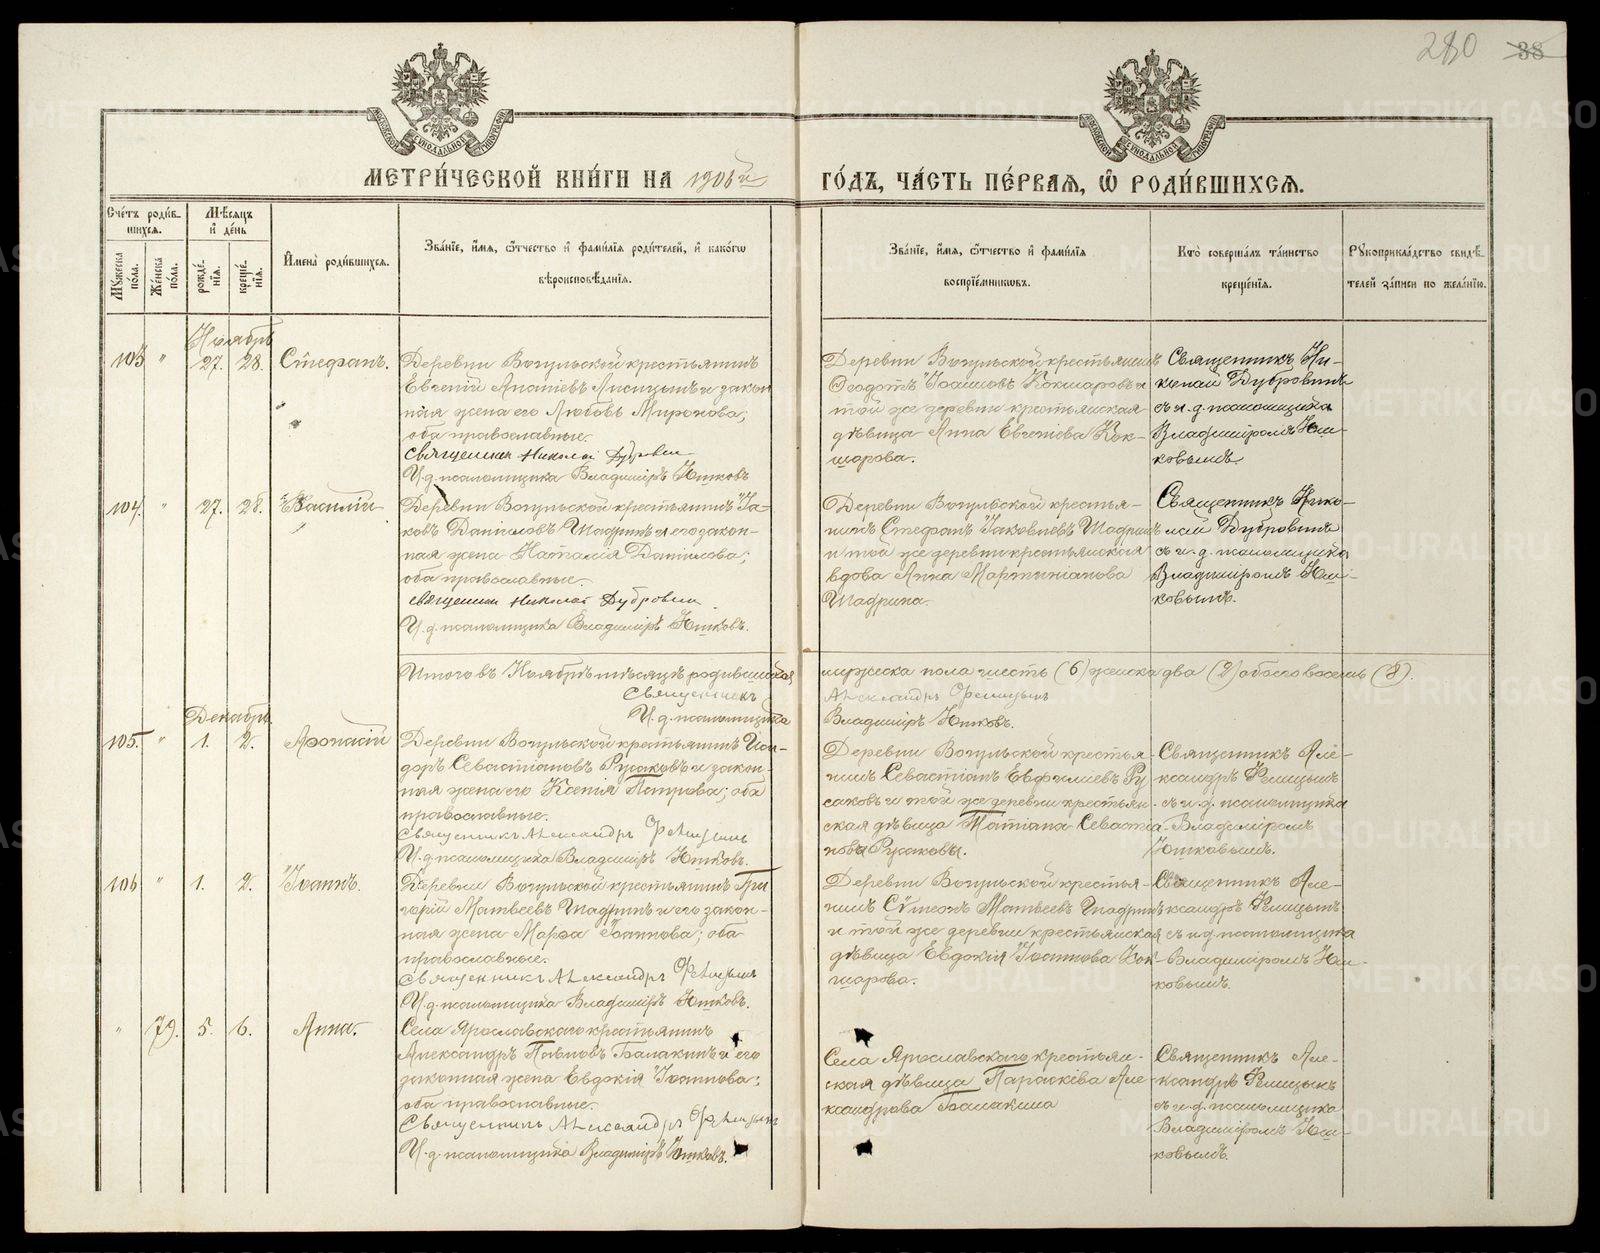 280 38
МЕТРИ́ЧЕСКОЙ КНИ́ГИ НА 1906й ГО́ДЪ, ЧА́СТЬ ПЕ́РВАЯ, Ѡ РОДИ́ВШИХСЯ.
Сче́тъ роди́в-
шихся.
Му́жеска по́ла.
Же́нска по́ла.
Мѣ́сяцъ
и де́нь
рожде́-
нїя.
креще́-
нїя.
Имена̀ роди́вшихся.
Зва́нїе, и́мя, ѻ́тчество и фами́лїя роди́телей, и како́гѡ
вѣроисповѣ́данїя.
Зва́нїе, и́мя, ѻ́тчество и фами́лїя
воспрїе́мниковъ.
Кто̀ соверша́лъ та́инство
креще́нїя.
Рꙋкоприкла́дство свидѣ́-
телей за́писи по жела́нїю.
Ноябрь
103 " 27. 28. Стефанъ.
Деревни Вогульской крестьянинъ
Евгеній Ипатіевъ Лисицынъ и закон
ная жена его Любовь Миронова;
оба православные.
Священникъ Николай Дубровинъ
И. д. псаломщика Владиміръ Юшковъ
Деревни Вогульской крестьянинъ
Ѳеодотъ Іоанновъ Кокшаровъ и
той же деревни крестьянская
дѣвица Анна Евгеніева Кок-
шарова.
Священникъ Ни-
колай Дубровинъ
съ и. д. псаломщика
Владиміромъ Юш-
ковымъ.
104. " 27. 28. Василій
Деревни Вогульской крестьянинъ Іа-
ковъ Даниловъ Шадринъ и его закон-
ная жена Наталія Данилова;
оба православные.
Священникъ Николай Дубровинъ
И. д. псаломщика Владиміръ Юшковъ.
Деревни Вогульской крестья-
нинъ Стефанъ Іаковлевъ Шадринъ
и той же деревни крестьянская
вдова Анна Мартиніанова
Шадрина.
Священникъ Нико-
лай Дубровинъ
съ и. д. псаломщика
Владиміромъ Юш-
ковымъ.
Итого въ Ноябрѣ мѣсяцѣ родившихся мужеска пола шесть (6) женска два (2) обоего восемь (8).
Священникъ Александръ Фелицынъ
И. д. псаломщика Владиміръ Юшковъ.
Декабрь
105. " 1. 2. Аѳонасій
Деревни Вогульской крестьянинъ Иси-
доръ Севастіановъ Русаковъ и закон-
ная жена его Ксенія Петрова; оба
православные.
Священникъ Александръ Фелицынъ
И. д. псаломщика Владиміръ Юшковъ.
Деревни Вогульской крестья-
нинъ Севастіанъ Евфиміевъ Ру
саковъ и той же деревни крестьян-
ская дѣвица Татіана Севастіа-
нова Русакова.
Священникъ Але-
ксандръ Фелицынъ
съ и. д. псаломщика
Владиміромъ
Юшковымъ.
106 " 1. 2. Іоаннъ.
Деревни Вогульской крестьянинъ Гри
горій Матвеевъ Шадринъ и его закон-
ная жена Марѳа Іоаннова; оба
православные.
Священникъ Александръ Фелицынъ
И. д. псаломщика Владиміръ Юшковъ.
Деревни Вогульской крестья-
нинъ Сѵмеонъ Матвеевъ Шадринъ
и той же деревни крестьянская
дѣвица Евдокія Іоаннова Кок-
шарова.
Священникъ Але-
ксандръ Фелицынъ
съ и. д. псаломщика
Владиміромъ Юш-
ковымъ.
" 79. 5. 6. Анна.
Села Ярославскаго крестьянинъ
Александръ Павловъ Балакинъ и его
законная жена Евдокія Іоаннова;
оба православные.
Священникъ Александръ Фелицынъ
И. д. псаломщика Владиміръ Юшковъ.
Села Ярославскаго крестьян-
ская дѣвица Параскева Але-
ксандрова Балакина
Священникъ Але-
ксандръ Фелицынъ
съ и. д. псаломщика
Владиміромъ Юш-
ковымъ.